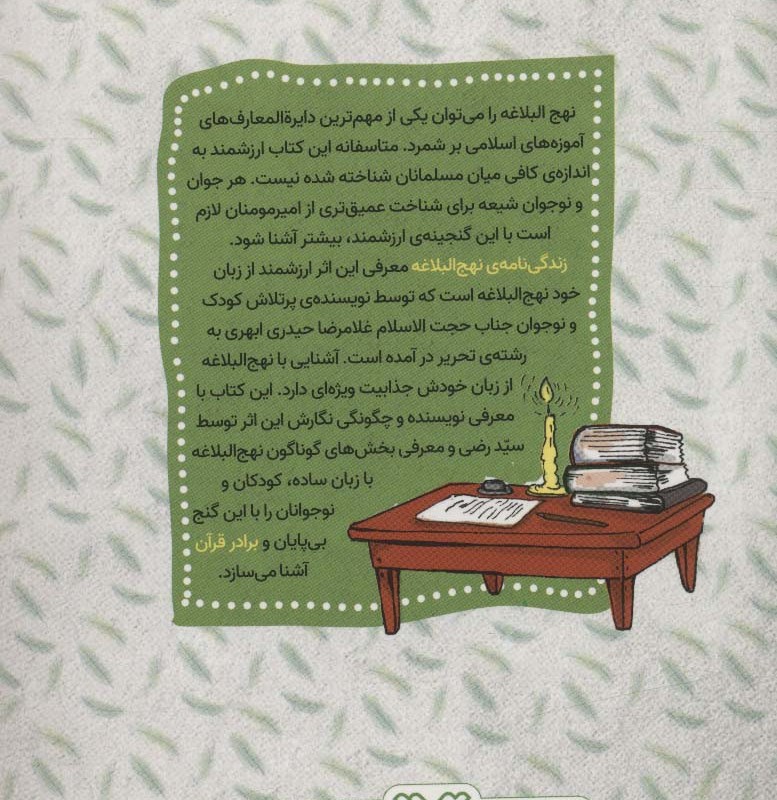 نهج البلاغه را می‌توان یکی از مهم‌ترین دایرةالمعارف‌های
آموزه‌های اسلامی بر شمرد. متاسفانه این کتاب ارزشمند به
اندازه‌ی کافی میان مسلمانان شناخته شده نیست. هر جوان
و نوجوان شیعه برای شناخت عمیق‌تری از امیرمومنان لازم
است با این گنجینه‌ی ارزشمند، بیشتر آشنا شود.
زندگی‌نامه‌ی نهج‌البلاغه معرفی این اثر ارزشمند از زبان
خود نهج‌البلاغه است که توسط نویسنده‌ی پرتلاش کودک
و نوجوان جناب حجت الاسلام غلامرضا حیدری ابهری به
رشته‌ی تحریر در آمده است. آشنایی با نهج‌البلاغه
از زبان خودش جذابیت ویژه‌ای دارد. این کتاب با
معرفی نویسنده و چگونگی نگارش این اثر توسط
سیّد رضی و معرفی بخش‌های گوناگون نهج‌البلاغه
با زبان ساده، کودکان و
نوجوانان را با این گنج
بی‌پایان و برادر قرآن
آشنا می‌سازد.